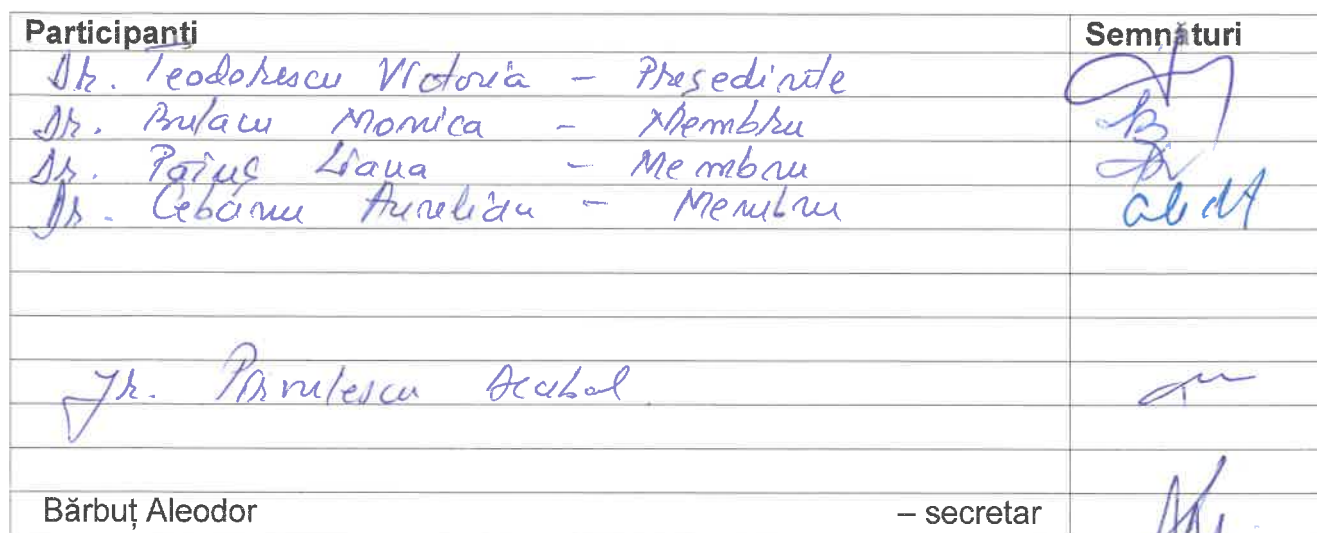 Participanţi Semnături
Dr. Teodorescu Victoria – Președinte
Dr. Bulacu Monica – Membru
Dr. Păiuș Liana – Membru
Dr. Cebanu Aurelian – Membru
Jr. Pârvulescu Decebal
Bărbuț Aleodor – secretar